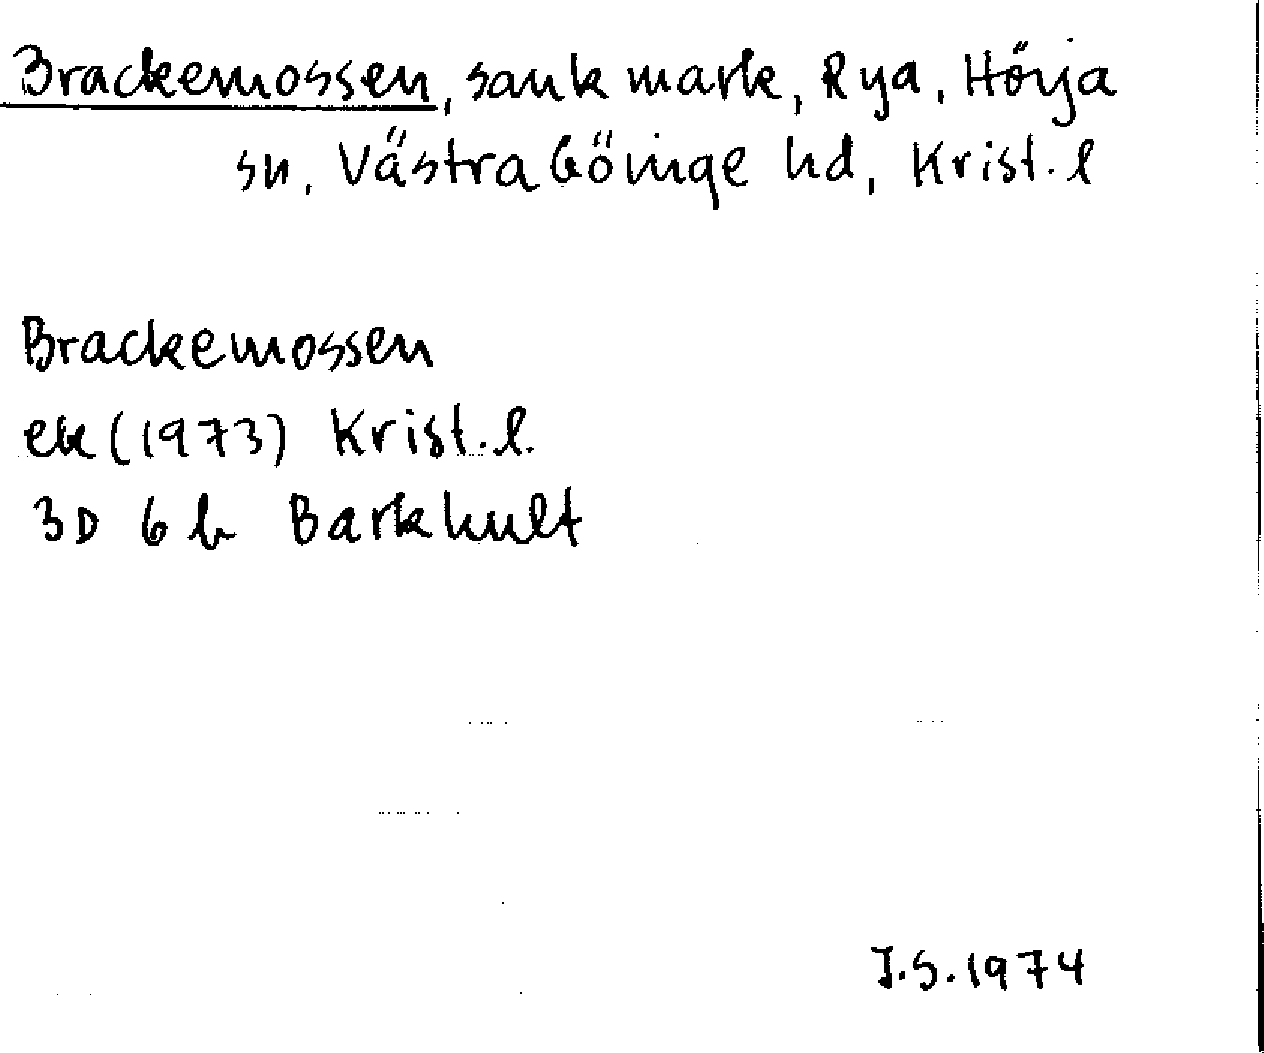 Brackemossen, sank mark, Rya, Hörja
sn, Västra Göinge hd, Krist. l
Brackemossen
ek (1973) Krist. l.
3D 6 b Barkhult
J.S. 1974